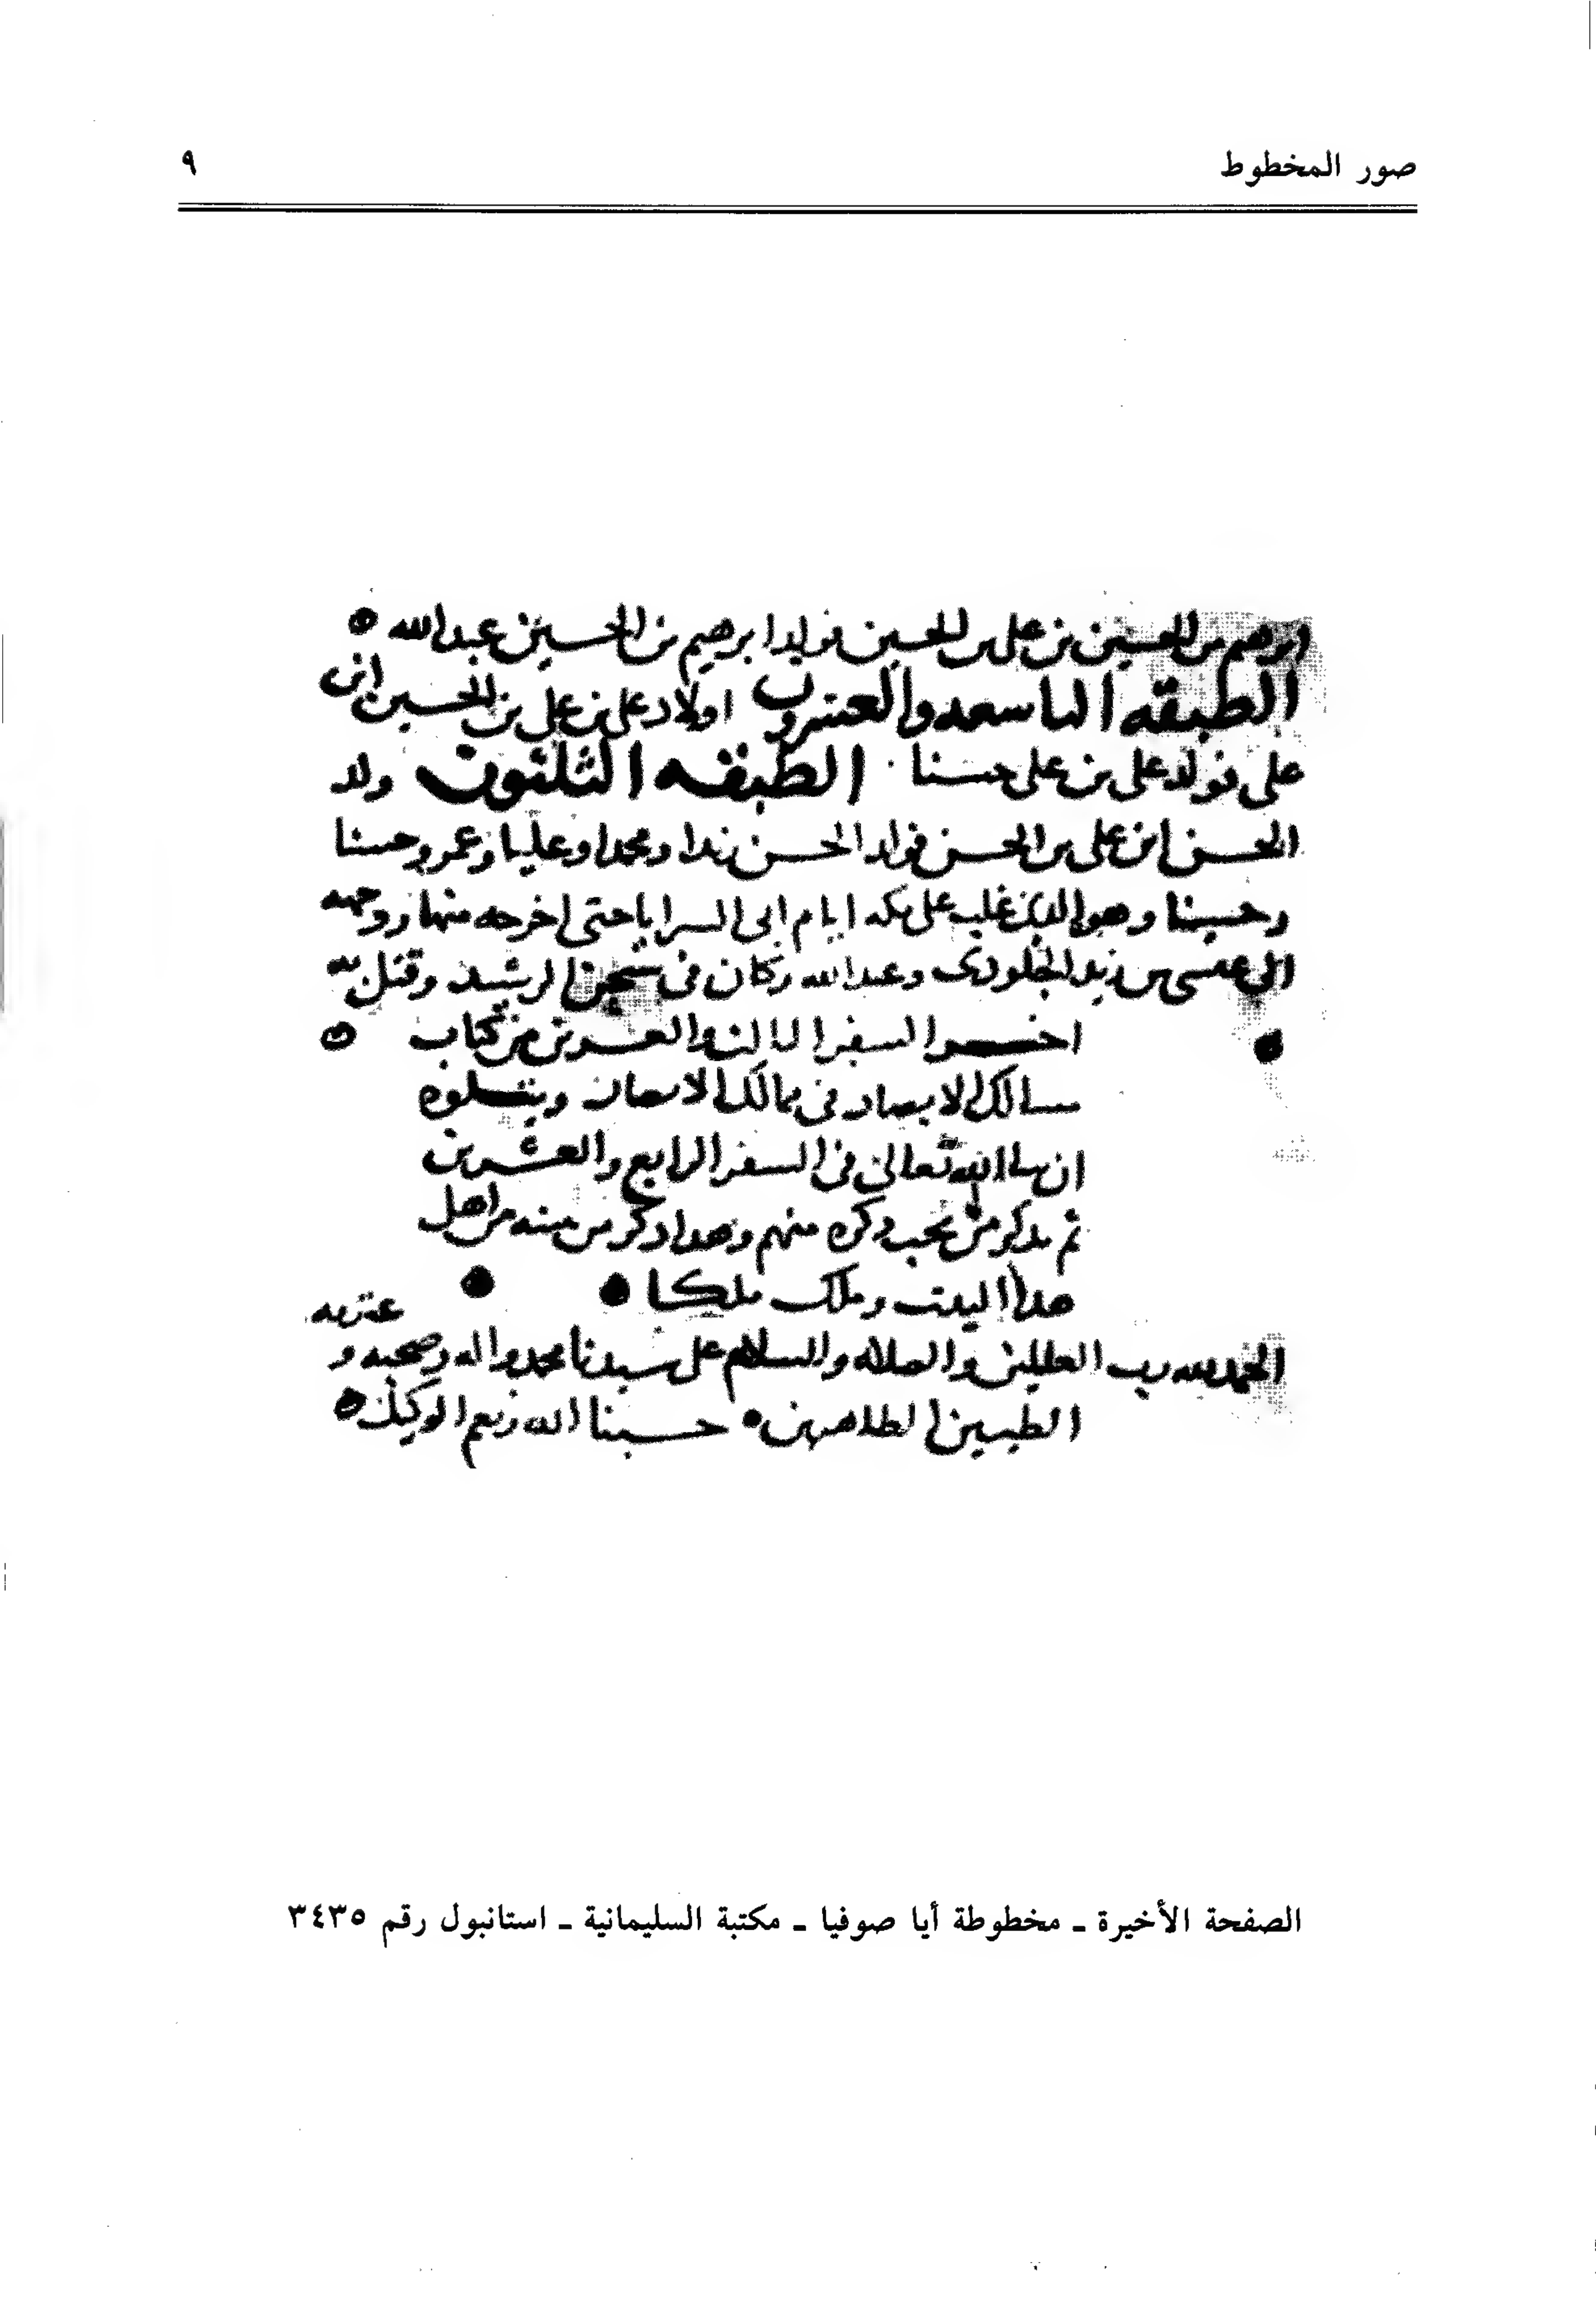 صور المخطوط ٩
ابرهيم بن الحسين بن على بن الحسين فولد ابرهيم بن الحسين عبدالله
الطبقه التاسعه والعشرون اولاد على بن على بن الحسين ابن
على فولد على بن على حسنا الطبقه الثلثون ولد
الحسن ابن على بن الحسن فولد الحسن زيدا ومحمدا وعليا وعمر وحسنا
وحسينا وهو الذى غلب على مكه ايام ابى السرايا حتى اخرجه منها ووجهه
الى عيسى بن زيد الجلودى وعبدالله وكان فى سجن الرشيد وقتل
اخر السفر الثالث والعشرين من كتاب
مسالك الابصار فى ممالك الامصار ويتلوه
ان شا الله تعالى فى السفر الرابع والعشرين
ثم نذكر من يجب ذكره منهم وهذا ذكر من منه من اهل
هذا البيت وملك ملكا
عترته
الحمد لله رب العالمين والصلاه والسلام على سيدنا محمد واله وصحبه و
الطيبين الطاهرين حسبنا الله ونعم الوكيل
الصفحة الأخيرة ـ مخطوطة أيا صوفيا ـ مكتبة السليمانية ـ استانبول رقم ٣٤٣٥